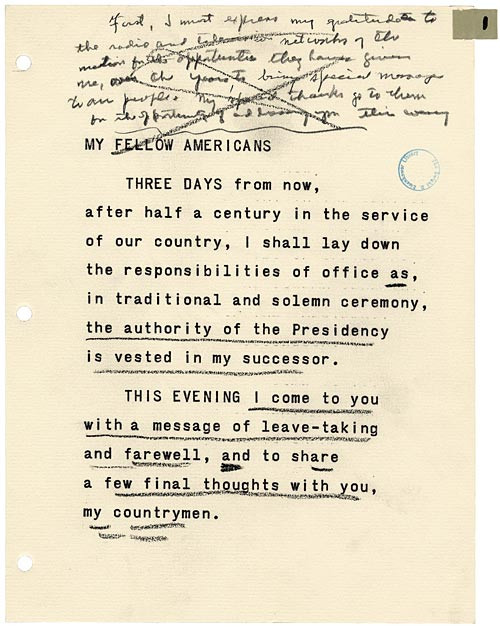 1
First, I must express my gratitude to
the radio and television networks of the
nation for the opportunities they have given
me, over the years, to bring special messages
to our people. My special thanks go to them
for the opportunity of addressing you this evening
MY FELLOW AMERICANS
THREE DAYS from now,
after half a century in the service
of our country, I shall lay down
the responsibilities of office as,
in traditional and solemn ceremony,
the authority of the Presidency
is vested in my successor.
THIS EVENING I come to you
with a message of leave-taking
and farewell, and to share
a few final thoughts with you,
my countrymen.